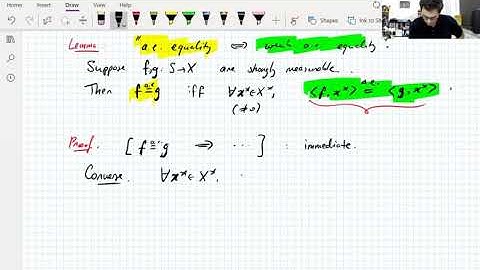 Home Insert Draw View
Ink to Shape
Lemma "a.e. equality ⟺ weak a.e. equality.
Suppose f, g: S→X are strongly measurable.
Then f a.e.= g iff ∀x*∈X*, ⟨f, x*⟩ a.e.= ⟨g, x*⟩.
(≠0)
Proof. [f a.e.= g ⟹ ...] : immediate.
Converse. ∀x*∈X*,